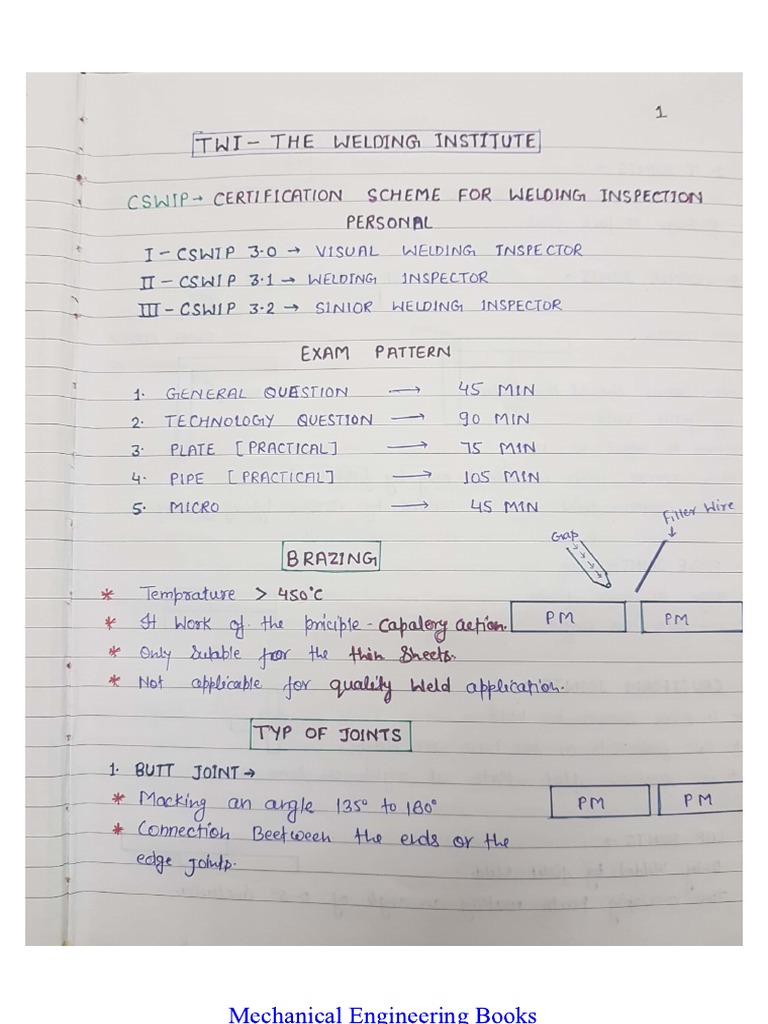 1
TWI - THE WELDING INSTITUTE
CSWIP → CERTIFICATION SCHEME FOR WELDING INSPECTION
PERSONAL
I - CSWIP 3.0 → VISUAL WELDING INSPECTOR
II - CSWIP 3.1 → WELDING INSPECTOR
III - CSWIP 3.2 → SINIOR WELDING INSPECTOR
EXAM PATTERN
1. GENERAL QUESTION → 45 MIN
2. TECHNOLOGY QUESTION → 90 MIN
3. PLATE [PRACTICAL] → 75 MIN
4. PIPE [PRACTICAL] → 105 MIN
5. MICRO → 45 MIN
Gap
Filler Wire
BRAZING
* Temprature > 450°C
* It Work of the priciple - Capalery action.
PM PM
* Only Sutable froor the thin Sheets.
* Not applicable for quality Weld application.
TYP OF JOINTS
1. BUTT JOINT →
* Macking an angle 135° to 180°
PM PM
* Connection Beetween the ends or the
edge joints.
Mechanical Engineering Books